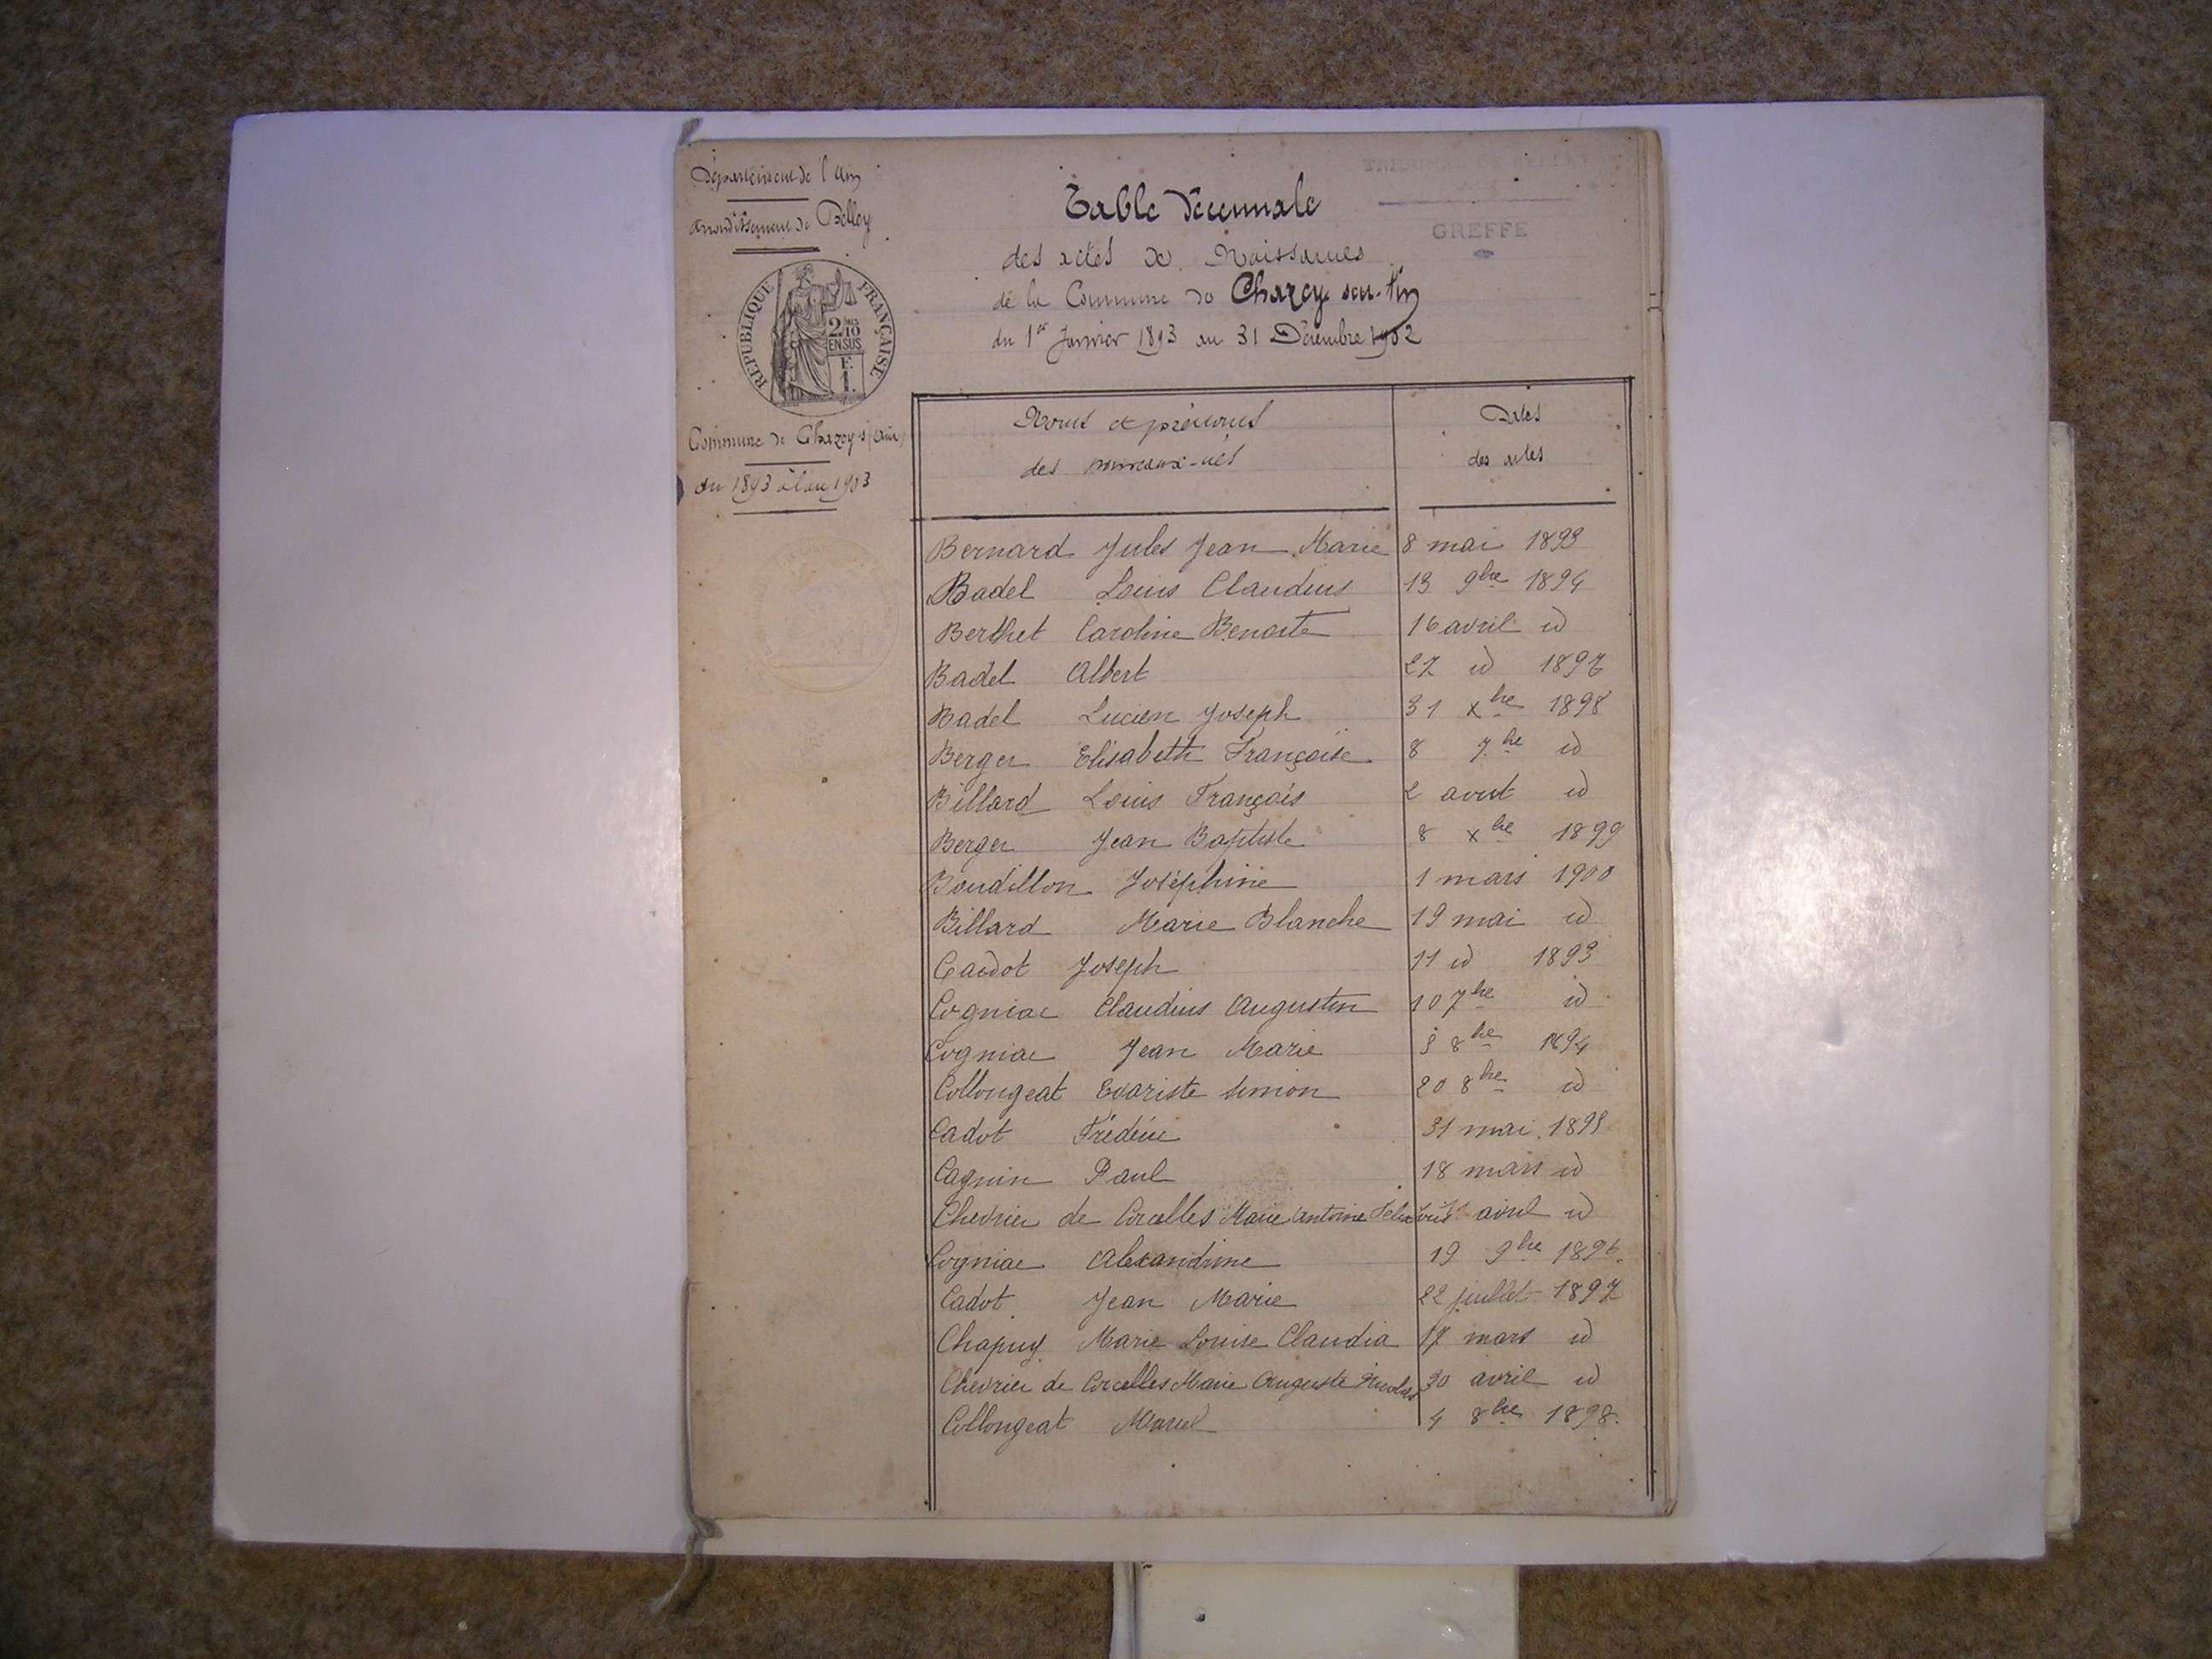 Département de l'Ain
Arrondissement de Belley
REPUBLIQUE FRANÇAISE
2/10 EN SUS
F.
1.
Commune de Chazey s/ Ain
du 1893 à l'an 1903
TRIBUNAL
GREFFE
Table décennale
des actes de Naissances
de la Commune de Chazey sur-Ain
du 1er Janvier 1893 au 31 Décembre 1902
Noms et prénoms
des nouveaux-nés
Dates
des actes
Bernard Jules Jean Marie 8 mai 1893
Badel Louis Claudius 13 9bre 1894
Berthet Caroline Benoite 16 avril id
Badel Albert 27 id 1897
Badel Lucien Joseph 31 xbre 1898
Berger Elisabeth Françoise 8 7bre id
Billard Louis François 2 aout id
Berger Jean Baptiste 8 xbre 1899
Boudillon Joséphine 1 mars 1900
Billard Marie Blanche 19 mai id
Caidot Joseph 11 id 1893
Cogniac Claudius Augustin 10 7bre id
Cogniac Jean Marie 8bre 1894
Collongeat Evariste Simon 20 8bre id
Cadot Frédéric 31 mai 1895
Cagnin Paul 18 mars id
Chevrier de Corcelles Marie Antoine Felix avril id
Cogniac Alexandrine 19 9bre 1896
Cadot Jean Marie 22 juillet 1897
Chapuy Marie Louise Claudia 17 mars id
Chevrier de Corcelles Marie Auguste Nicolas 30 avril id
Collongeat Marcel 4 8bre 1898.